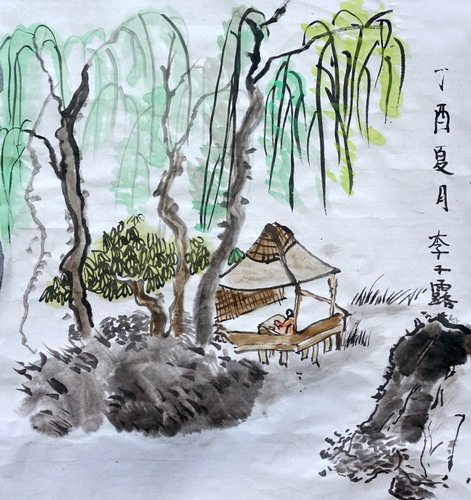 丁酉夏月李千露